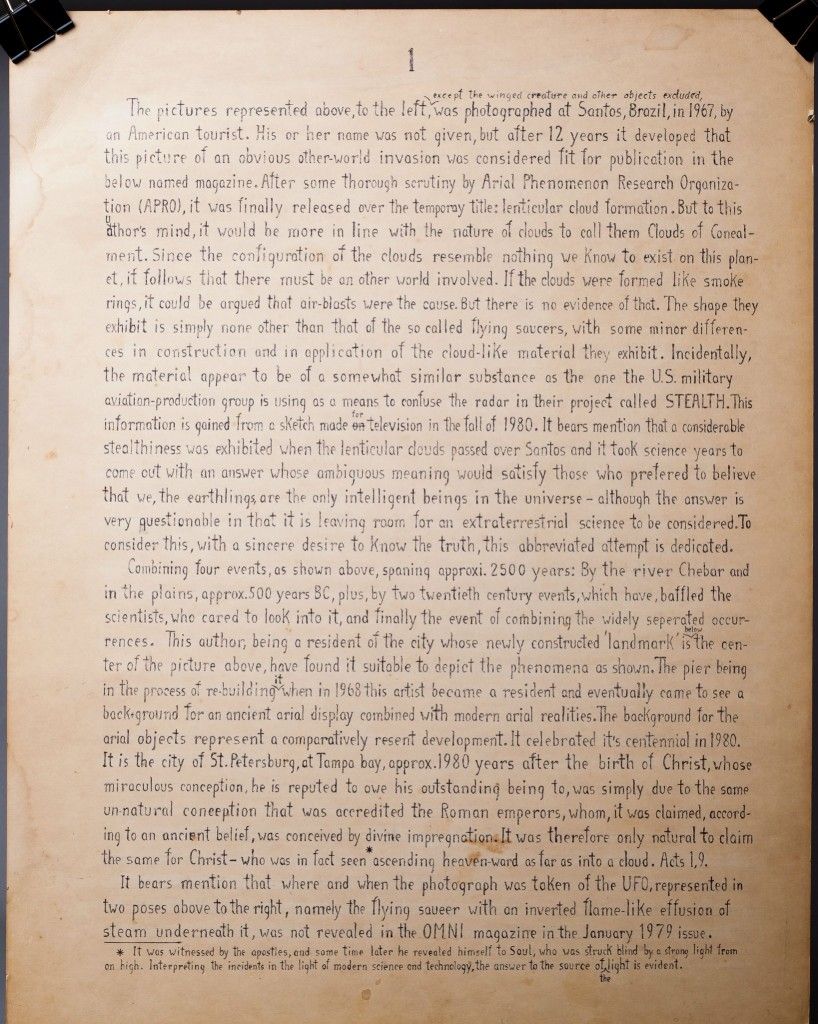 1
except the winged creature and other objects excluded,
The pictures represented above, to the left, was photographed at Santos, Brazil, in 1967, by
an American tourist. His or her name was not given, but after 12 years it developed that
this picture of an obvious other-world invasion was considered fit for publication in the
below named magazine. After some thorough scrutiny by Arial Phenomenon Research Organiza-
tion (APRO), it was finally released over the temporay title: lenticular cloud formation. But to this
author's mind, it would be more in line with the nature of clouds to call them Clouds of Conceal-
ment. Since the configuration of the clouds resemble nothing we know to exist on this plan-
et, it follows that there must be an other world involved. If the clouds were formed like smoke
rings, it could be argued that air-blasts were the cause. But there is no evidence of that. The shape they
exhibit is simply none other than that of the so called flying saucers, with some minor differen-
ces in construction and in application of the cloud-like material they exhibit. Incidentally,
the material appear to be of a somewhat similar substance as the one the U.S. military
aviation-production group is using as a means to confuse the radar in their project called STEALTH. This
information is gained from a sketch made for television in the fall of 1980. It bears mention that a considerable
stealthiness was exhibited when the lenticular clouds passed over Santos and it took science years to
come out with an answer whose ambiguous meaning would satisfy those who prefered to believe
that we, the earthlings, are the only intelligent beings in the universe - although the answer is
very questionable in that it is leaving room for an extraterrestrial science to be considered. To
consider this, with a sincere desire to know the truth, this abbreviated attempt is dedicated.
Combining four events, as shown above, spaning approxi. 2500 years: By the river Chebar and
in the plains, approx. 500 years BC, plus, by two twentieth century events, which have, baffled the
scientists, who cared to look into it, and finally the event of combining the widely seperated occur-
rences. This author, being a resident of the city whose newly constructed 'landmark' is below the cen-
ter of the picture above, have found it suitable to depict the phenomena as shown. The pier being
in the process of re-building it when in 1968 this artist became a resident and eventually came to see a
back-ground for an ancient arial display combined with modern arial realities. The background for the
arial objects represent a comparatively resent development. It celebrated it's centennial in 1980.
It is the city of St. Petersburg, at Tampa bay, approx. 1980 years after the birth of Christ, whose
miraculous conception, he is reputed to owe his outstanding being to, was simply due to the same
un-natural conception that was accredited the Roman emperors, whom, it was claimed, accord-
ing to an ancient belief, was conceived by divine impregnation. It was therefore only natural to claim
the same for Christ - who was in fact seen * ascending heaven-ward as far as into a cloud. Acts 1,9.
It bears mention that where and when the photograph was taken of the UFO, represented in
two poses above to the right, namely the flying saucer with an inverted flame-like effusion of
steam underneath it, was not revealed in the OMNI magazine in the January 1979 issue.
* It was witnessed by the apostles, and some time later he revealed himself to Saul, who was struck blind by a strong light from
on high. Interpreting the incidents in the light of modern science and technology, the answer to the source of the light is evident.